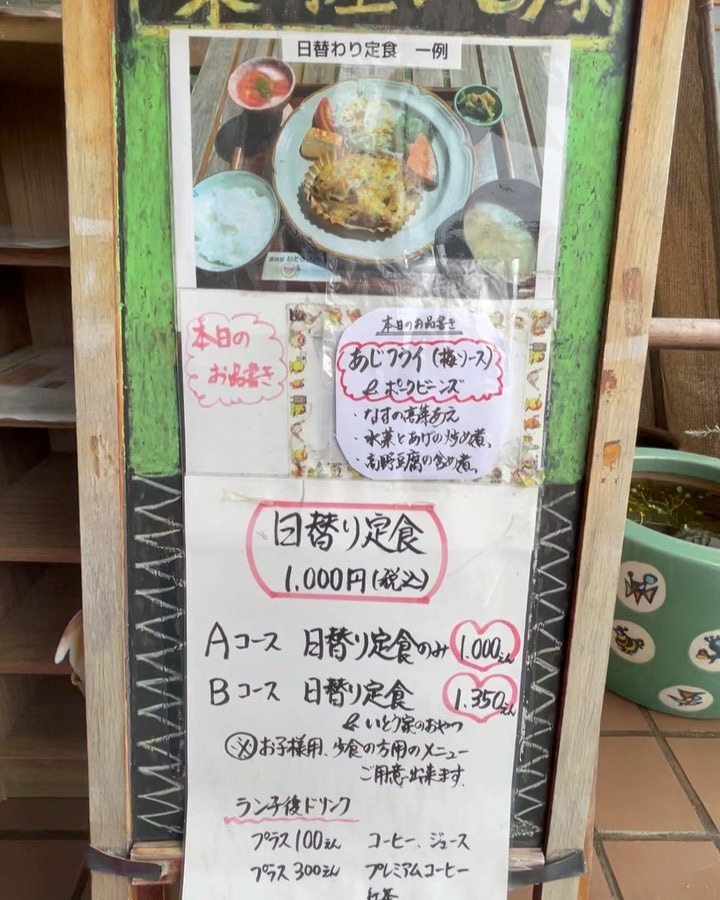 日替わり定食 一例
本日の
お品書き
本日のお品書き
あじフライ(梅ソース)
& ポークビーンズ
・なすの高菜あえ
・水菜とあげの炒め煮、
・高野豆腐の含め煮、
日替り定食
1,000円(税込)
Aコース 日替り定食のみ 1.000えん
Bコース 日替り定食 1.350えん
& いとう家のおやつ
※お子様用、少食の方用のメニュー
ご用意出来ます。
ランチ後ドリンク
プラス100えん コーヒー、ジュース
プラス300えん プレミアムコーヒー
紅茶